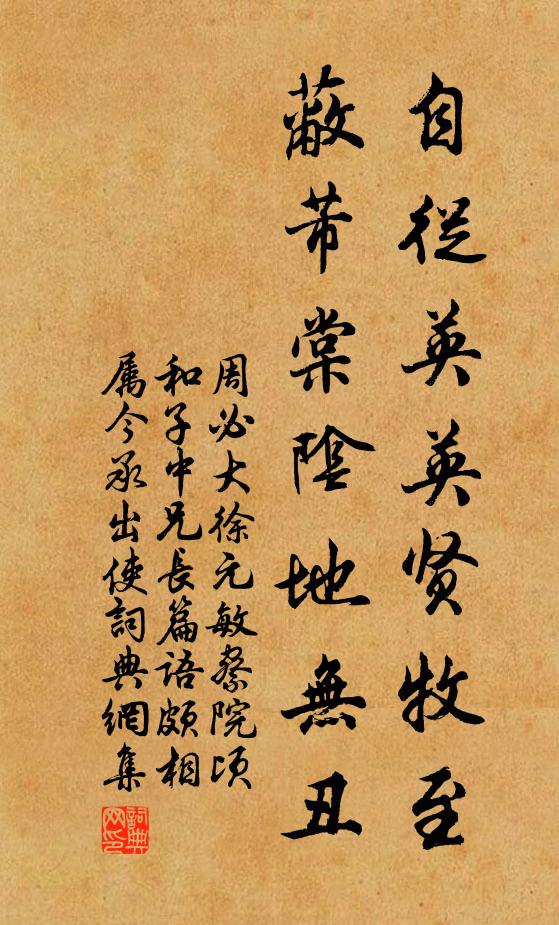 自從英英贤牧至
蔽芾棠陰地無丑
周必大徐元敏察院顷
和子中兄長篇语頗相
属今承出使詞典網集
詞典网印